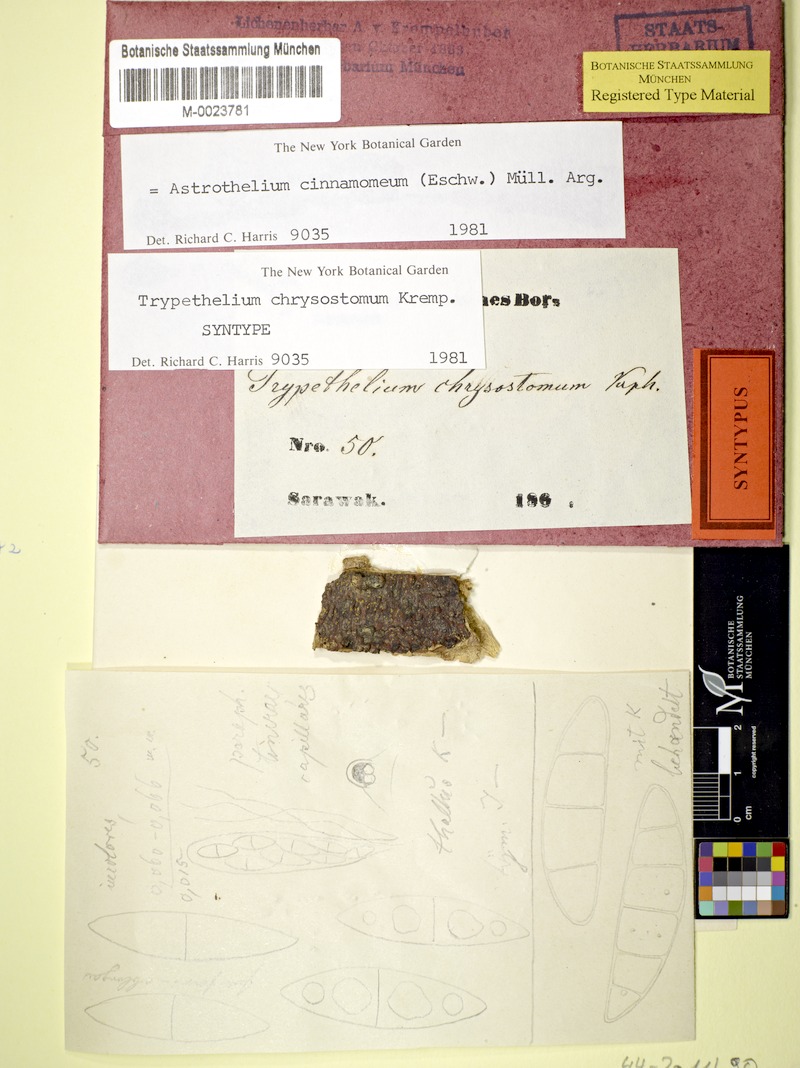 Lichenenherbar A. v. Krempelhuber
STAATS-
HERBARIUM
Botanische Staatssammlung München
M-0023781
BOTANISCHE STAATSSAMMLUNG
MÜNCHEN
Registered Type Material
The New York Botanical Garden
= Astrothelium cinnamomeum (Eschw.) Müll. Arg.
Det. Richard C. Harris 9035 1981
The New York Botanical Garden
Trypethelium chrysostomum Kremp.
SYNTYPE
Det. Richard C. Harris 9035 1981
Trypethelium chrysostomum
Nro. 50.
Sarawak. 186 .
SYNTYPUS
BOTANISCHE
STAATSSAMMLUNG
MÜNCHEN
copyright reserved
0 1 2
cm
50.
incolores,
0,060-0,066 m.m.
0,015
paraph.
lineares
capillares
thallus K —
J —
mit K
behandelt